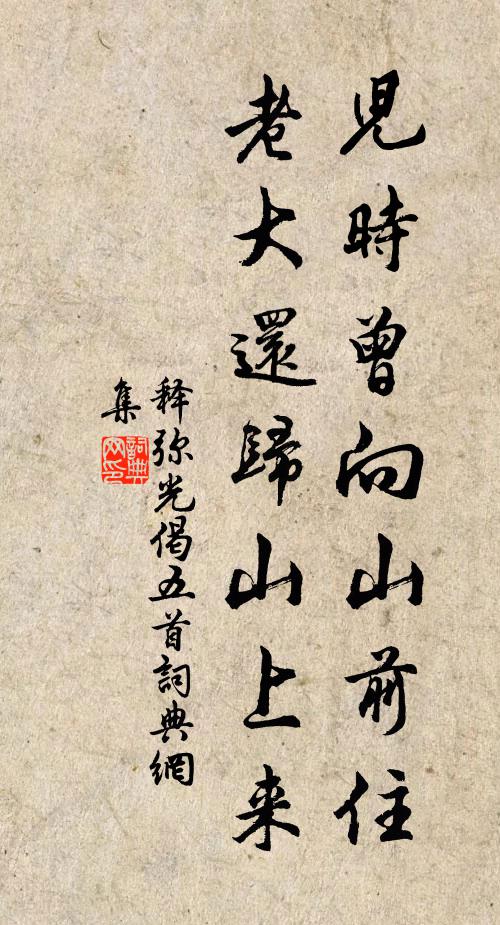 兒時曾向山前住
老大還歸山上来
释弥光偈五首詞典網
集
詞典網印